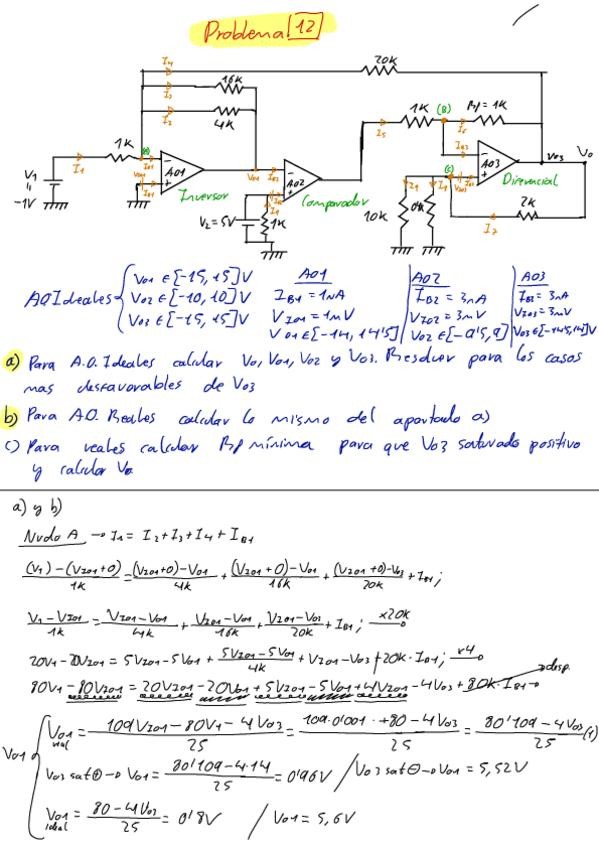 Problema 12
I4
20K
I3
16K
I2
4K
1K
I1
V1
-1V
(A)
AO1
Inversor
VO1
AO2
Comparador
V2=5V
1K
I5
1K
(B)
Rp=1K
I6
IB3
AO3
Diferencial
VO3
Vo
(C)
10K
2K
I7
AO Ideales
VO1 ∈ [-15, 15] V
VO2 ∈ [-10, 10] V
VO3 ∈ [-15, 15] V
AO1
IB1 = 1nA
VIO1 = 1mV
VO1 ∈ [-14, 14'5]
AO2
IB2 = 3nA
VIO2 = 3mV
VO2 ∈ [-9'5, 9]
AO3
IB3 = 3nA
VIO3 = 3mV
VO3 ∈ [-14'5, 14] V
a) Para A.O. Ideales calcular Vo, VO1, VO2 y VO3. Resolver para los casos
mas desfavorables de VO3
b) Para AO. Reales calcular lo mismo del apartado a)
c) Para reales calcular Rp mínima para que VO3 saturado positivo
y calcular Vo
a) y b)
Nudo A → I1 = I2 + I3 + I4 + IB1
(V1) - (VIO1+0) / 1K = (VIO1+0) - VO1 / 4K + (VIO1+0) - VO1 / 16K + (VIO1+0) - VO3 / 20K + IB1;
V1 - VIO1 / 1K = VIO1 - VO1 / 4K + VIO1 - VO1 / 16K + VIO1 - VO3 / 20K + IB1; x20K
20V1 - 20VIO1 = 5VIO1 - 5VO1 + 5VIO1 - 5VO1 / 4K + VIO1 - VO3 + 20K · IB1; x4
desp.
80V1 - 80VIO1 = 20VIO1 - 20VO1 + 5VIO1 - 5VO1 + 4VIO1 - 4VO3 + 80K · IB1
VO1 real = 109VIO1 - 80V1 - 4VO3 / 25 = 109·0'001 · +80 - 4VO3 / 25 = 80'109 - 4VO3 / 25 (1)
VO1
VO3 sat⊕ → VO1 = 80'109 - 4·14 / 25 = 0'96V / VO3 sat⊖ → VO1 = 5,52V
VO1 ideal = 80 - 4VO3 / 25 = 0'8V / VO1 = 5,6V